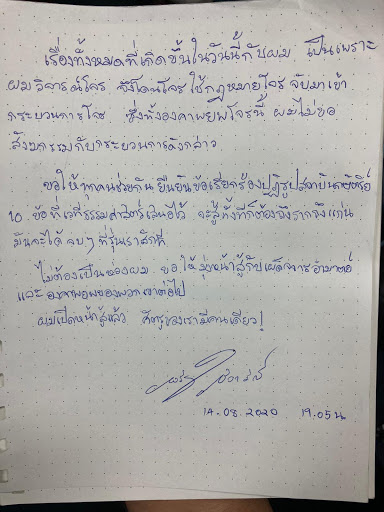 เรื่องทั้งหมดที่เกิดขึ้นในวันนี้กับผม เป็นเพราะ
ผมวิจารณ์โจร จึงโดนโจรใช้กฎหมายโจร จับมาเข้า
กระบวนการโจร ซึ่งทั้งองคาพยพโจรนี้ ผมไม่ขอ
สังฆกรรมกับกระบวนการดังกล่าว
ขอให้ทุกคนช่วยกัน ยืนยันข้อเรียกร้องปฏิรูปสถาบันกษัตริย์
10 ข้อที่เวทีธรรมศาสตร์เสนอไว้ จะสู้ทั้งทีก็ต้องถึงรากถึงแก่น
มันจะได้จบๆ ที่รุ่นเราสักที
ไม่ต้องเป็นห่วงผม ขอให้มุ่งหน้าสู้กับเผด็จการอำมาตย์
และองคาพยพของพวกเขาต่อไป
ผมเปิดหน้าสู้แล้ว ศัตรูของเรามีคนเดียว!
14.08.2020 19.05น